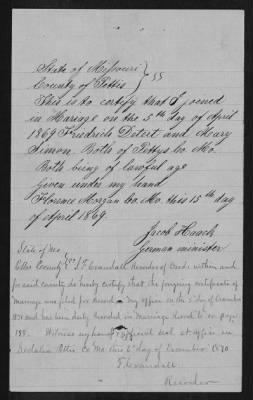 State of Missouri
County of Pettis } SS
This is to certify that I joined
in Mariage on the 5th day of April
1869 Friedrich Detert and Mary
Simon. Both of Pettys Co Mo.
Both being of lawful age
Given under my hand
Florence Morgan Co. Mo. this 15th day
of April 1869.
Jacob Haack
German minister
State of Mo
County I Crandall Recorder of Deeds within and
for said County do hereby certify that the foregoing certificate of
marriage was filed for Record in my office on the day of December
1870 and has been duly Recorded in Marriage Record page
188. Witness my hand & official seal at office in
Sedalia Pettis Co Mo this day of December 1870
Crandall
Recorder